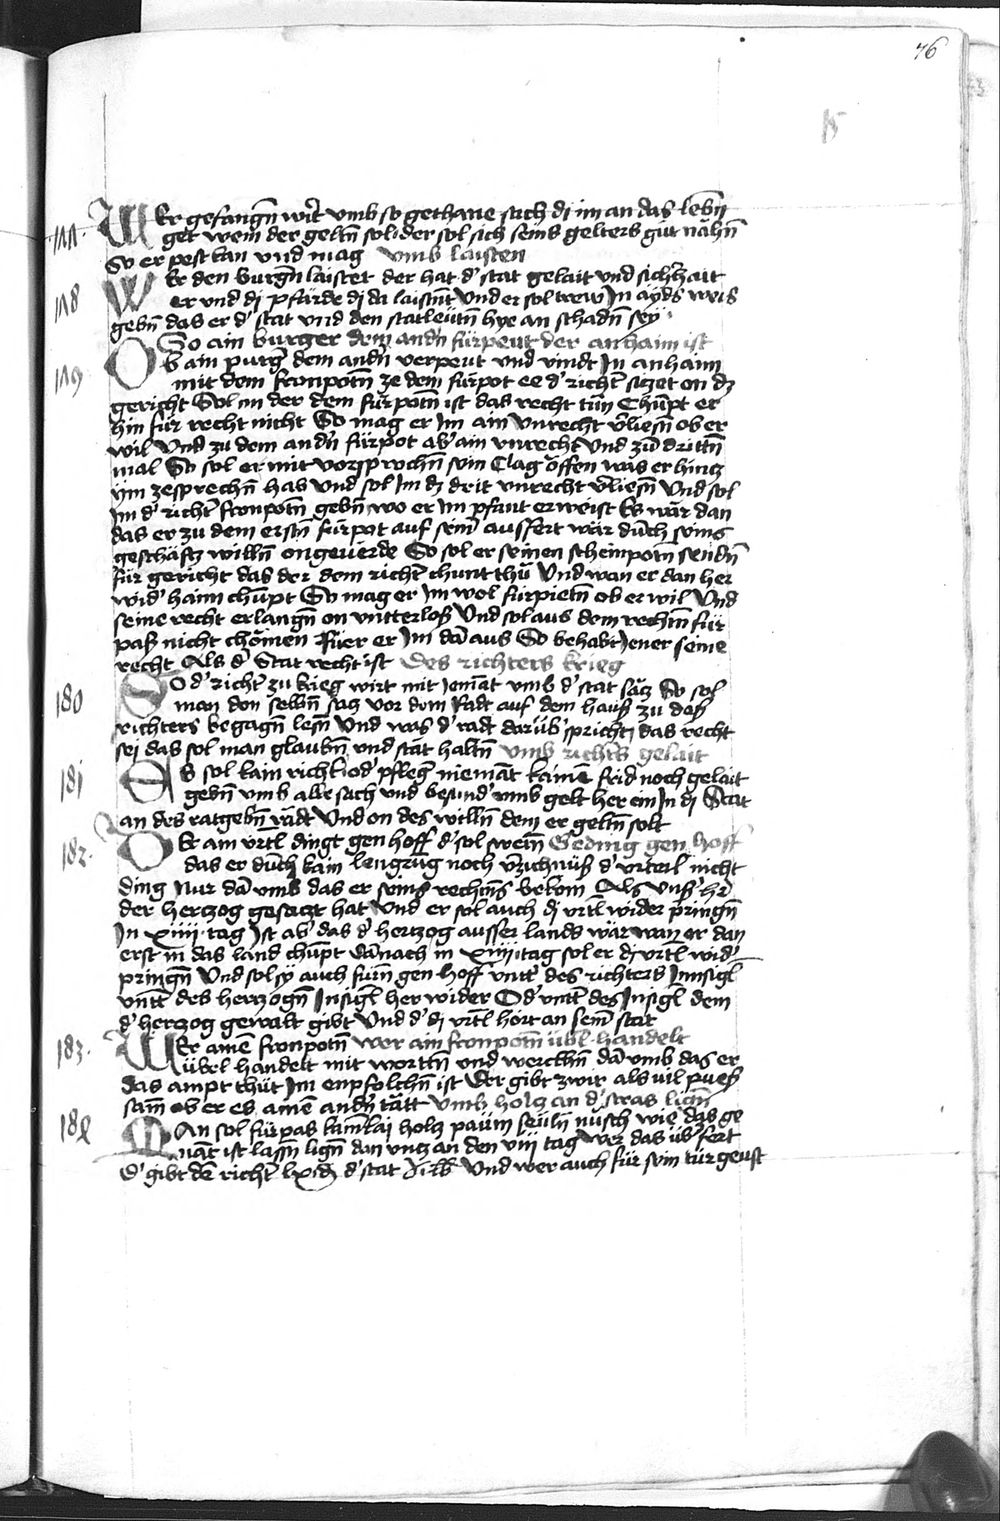 76
15
177. Wer gefangn̄ wirt vmb so gethane sach di im an das lebn̄
get wem der geltn̄ sol der sol sich seins gelters gut nähn̄
So er pest kan vnd mag vmb laisten
178 Wer den burgn̄ laistet der hat d' stat gelait vnd sich'hait
er vnd di pfärde di da laistnt Vnd er sol trew In ayds weis
gebn̄ das er d' stat vnd den statleutn̄ hye an schadn̄ sey
So ain burger dem andn̄ fürpeut der anhaim ist
179 Ob ain purg' dem andn̄ verpeut vnd vindt In anhaim
mit dem fronpotn̄ ze dem fürpot ee d' richt' sitzet on dz
gericht Sol im der dem fürpotn̄ ist das recht tun Chūpt er
hin für recht nicht So mag er Im ain Vnrecht v'liesn̄ ob er
wil Vnd zu dem andn̄ fürpot ab' ain vnrecht Vnd zū drittn̄
mal So sol er mit vorsprechn̄ sein Clag öffen was er hintz
ym zesprechn̄ hab Vnd sol Im dz drit vnrecht v'liesn̄ Vnd sol
Im d' richt' fronpotn̄ gebn̄ wo er Im pfant erweist Es wär dan
das er zu dem erstn̄ fürpot auf seinr ausfert wär durch seins
geschäftz willn̄ ongeuerde So sol er seinen scheinpotn̄ sendn̄
für gericht das der dem richt' chunt thū Vnd wan er dan her
wid' haim chūpt So mag er Im wol fürpietn̄ ob er wil Vnd
seine recht erlangn̄ on vntterlos Vnd sol aus dem rechtn̄ für
pas nicht chömen Füer er Im dā aus So behabt Jener seine
recht Als d' Stat recht ist Des richters krieg
180 So d' richt' zu krieg wirt mit Jemāt vmb d' stat sätz So sol
man den selbn̄ satz vor dem Radt auf dem haus zu des
richters begagn̄ lesn̄ Vnd was d' radt darüb' spricht das recht
sei das sol man glaubn̄ vnd stät haltn̄ vmb richt's gelait
181 Es sol kain richt' od' pfleg' niemāt kainē frid noch gelait
gebn̄ vmb alle sach vnd besund' vmb gelt her ein In di Stat
an des ratgebn̄ rädt Vnd on des willn̄ dem er geltn̄ solt
182. Wer ain vrtl dingt gen hoff d' sol swern̄ Geding gen hoff
das er durch kain lengrūg noch v'zuchnüs d' vrteil nicht
ding Nur dā vmb das er seins rechtns bekom Als vns' h'r
der hertzog gesatzt hat Vnd er sol auch di vrtl wider pringn̄
In xiiii tag Ist ab' das d' hertzog ausser lands wär wan er dan
erst in das land chūpt därnach in xiiii tag sol er di vrtl wid'
pringn̄ Vnd sol sy auch fürn̄ gen hoff vntt' des richters Innsigl
vntt' des hertzogn̄ Insigl her wider Od' vntt' des Insigl dem
d' hertzog gewalt gibt Vnd d' di vrtl hört an seinr stat
183. Wer ainē fronpotn̄ wer ain fronpotn̄ übl handelt
übel handelt mit wortn̄ vnd werchn̄ dā vmb das er
das ampt thüt Im enpfolchn̄ ist Der gibt zwir als vil pues
sam ob er es ainē andn̄ tätt Vmb holtz an d' stras lign̄
184 Man sol fürpas kainrlai holtz paum seuln̄ nusch wie das ge
nāt ist lassn̄ lign̄ dan vntz an den viii tag Wer das üb'fert
d' gibt dē richt' lxi dn̄ d' stat Vnd wer auch für sein tür geust